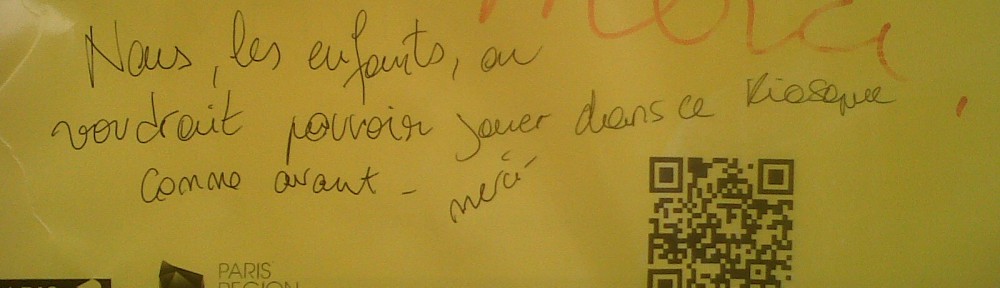 Merci
Nous, les enfants, on
voudrait pouvoir jouer dans ce kiosque
comme avant - merci
PARIS
REGION